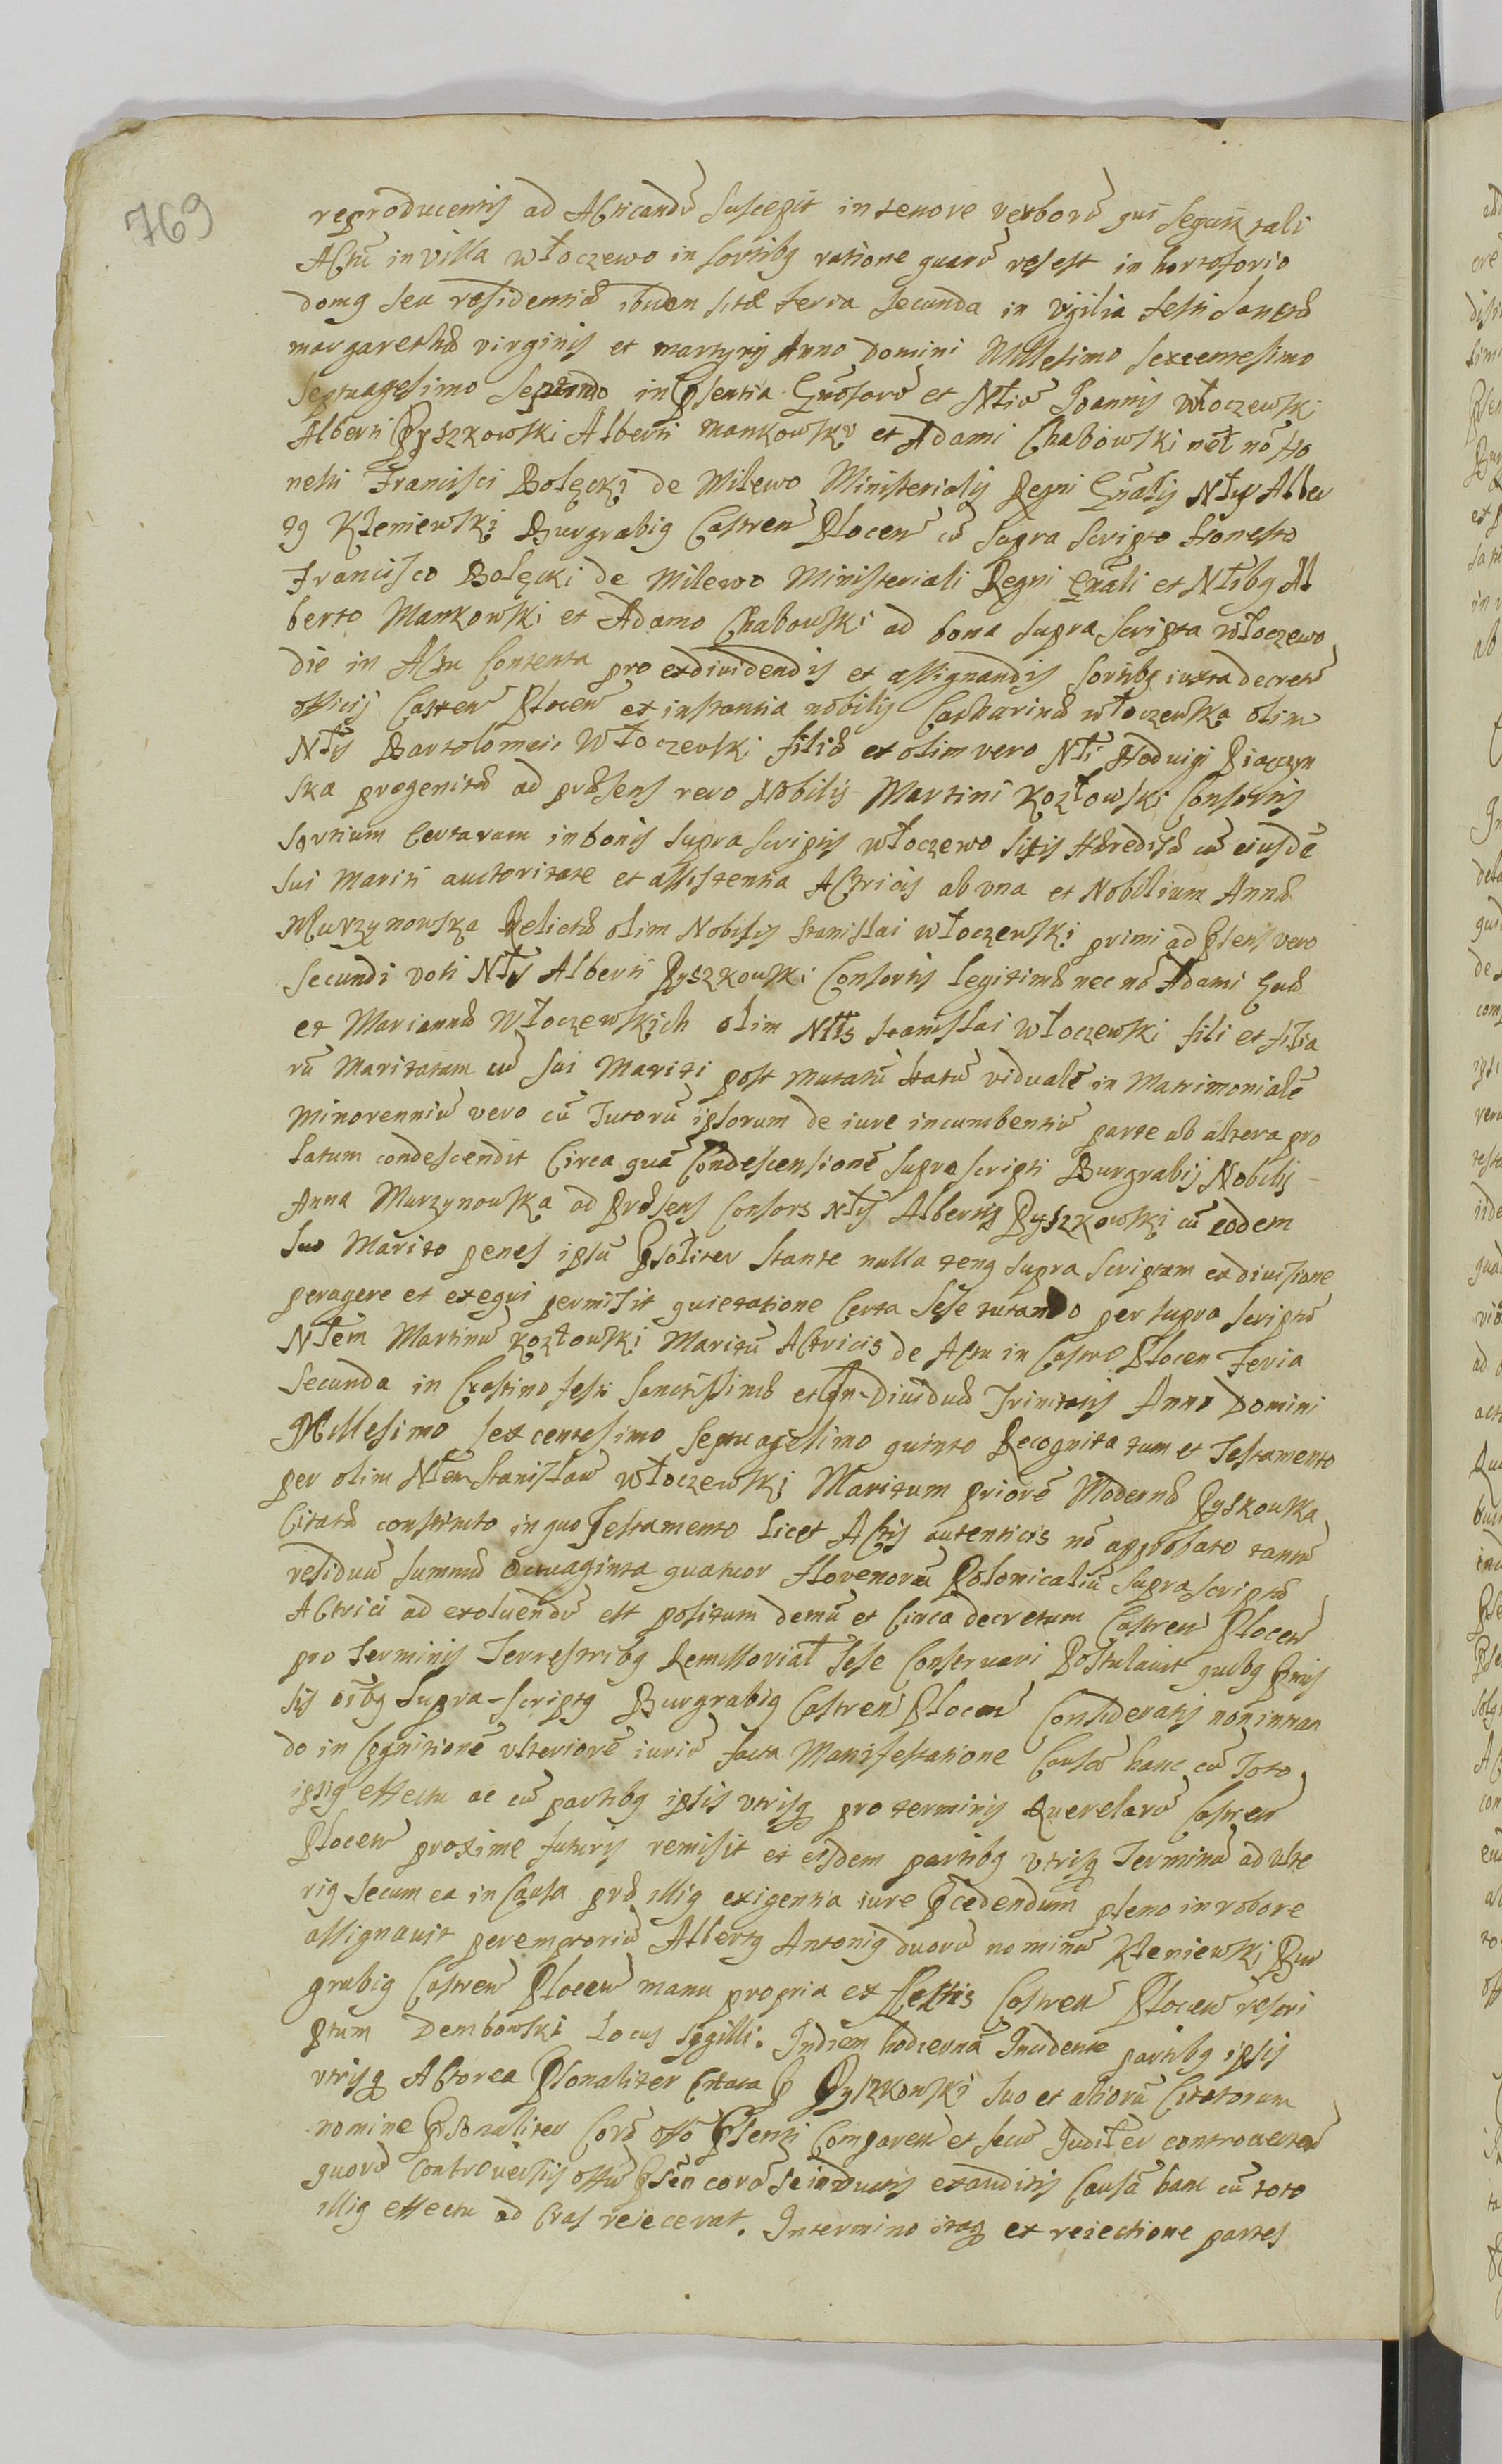 769
reproducentis ad Acticandũ suscepit in tenore verborũ qui sequit tali
Actũ in villa Włoczewo in sortibg ratione quarũ res est in hortoforio
domg seu residentiæ ibidem sitæ feria secunda in vigilia festi sanctæ
margarethæ virginis et martyris Anno Domini Millesimo sexcentesimo
septuagesimo septimo in Psentia Gnõsorũ et Nłiũ Joannis Włoczewski
Alberti Pyszkowski Alberti Mankowski et Adami Chabowski nec nõ Ho
nesti Francisci Bolęcki de Milewo Ministerialis Regni Gnãlis Nłis Alber
tg Kłeniewski Burgrabig Castren Płocen cũ supra scripto Honesto
Francisco Bolęcki de Milewo Ministeriali Regni Gnãli et Nłibg Al
berto Mankowski et Adamo Chabowski ad bona supra scripta Włoczewo
die in Actu contenta pro exdividendis et assignandis sortibg iuxta decretũ
officij Castren Płocen ex instantia nobilis Catharinæ Włoczewska olim
Nłis Bartolomeii Włoczewski filiæ ex olim vero Nłi Hedvigi
ska progenitæ ad præsens vero Nobilis Martini Kozłowski Consortis
sortium certarum in bonis supra scriptis Włoczewo sitis Hæredisæ cũ eiusdẽ
sui mariti auctoritate et assistentia Actricis ab una et Nobilium Annæ
Murzynowska Relictæ olim Nobilis Stanislai Włoczewski primi ad Psens vero
secundi voti Nłis Alberti Pyszkowski Consortis legitimæ nec nõ Adami Evæ
et Mariannæ Włoczewskich olim Nłis Stanislai Włoczewski fili et filia
rũ Maritatam cũ sui Mariti post mutatũ statũ vidualẽ in Matrimonialẽ
Minorenniũ vero cũ Tutorũ ipsorum de iure incumbentiũ parte ab altera pro
latum condescendit Circa quã Condescensionẽ supra scripti Burgrabij Nobilis
Anna Murzynowska ad Præsens Consors Nłis Alberti Pyszkowski cũ eodem
suo Marito penes ipsũ Psõliter stante nulla teng supra scriptam exdivisione
peragere et exequi permisit quietatione Certa sese tutando per supra scriptũ
Nłem Martinũ Kozłowski Maritũ Actricis de Actu in Castro Płocen Feria
Secunda in Crastino festi Sanctissimæ et In-Dividuæ Trinitatis Anno Domini
Millesimo sexcentesimo septuagesimo quinto Recognita tum et Testamento
per olim Nłem Stanisłaũ Włoczewski Maritum priorẽ Modernæ Pyskowska
Citatæ constructo in quo Testamento licet Actis autenticis nõ approbato tantũ
residuũ summæ octuaginta quatuor florenorũ Polonicaliũ supra scriptæ
Actrici ad exolvendũ est positum demũ et Circa decretum Castren Płocen
pro Terminis Terrestribg Remissoriał sese Conservari Postulavit quibg Pmis
sis oĩbg supra-scriptg Burgrabig Castren Płocen Consideratis non intran
do in Cognitionẽ ulteriorẽ iuriũ facta Manifestatione Causã hanc cũ Toto
ipsig effectu ac cũ partibg ipsis utrisq pro terminis Querelarũ Castren
Płocen proxime futuris remisit et eisdem partibg utrisq Terminũ ad ulte
rig secum ea in Causa præ illig exigentia iure Pcedendum pleno in robore
assignavit peremptoriũ Albertg Antonig duorũ nominũ Kłeniewski Bur
grabig Castren Płocen manu propria ex Actis Castren Płocen rescri
ptum Dembowski Locus Sigilli. In diem hodiernã Incidente partibg ipsis
utrisq Actorea Psonaliter Citata P Pyszkowski suo et aliorũ Citatorum
nomine Psonaliter Corã offo Psenti Comparen et secũ Judił̃er controverten
quorũ controversijs offũ Psẽn corã se inductis exauditis Causã hanc cũ toto
illig effectu ad Cras reiecerat. In termino itaq ex reiectione partes